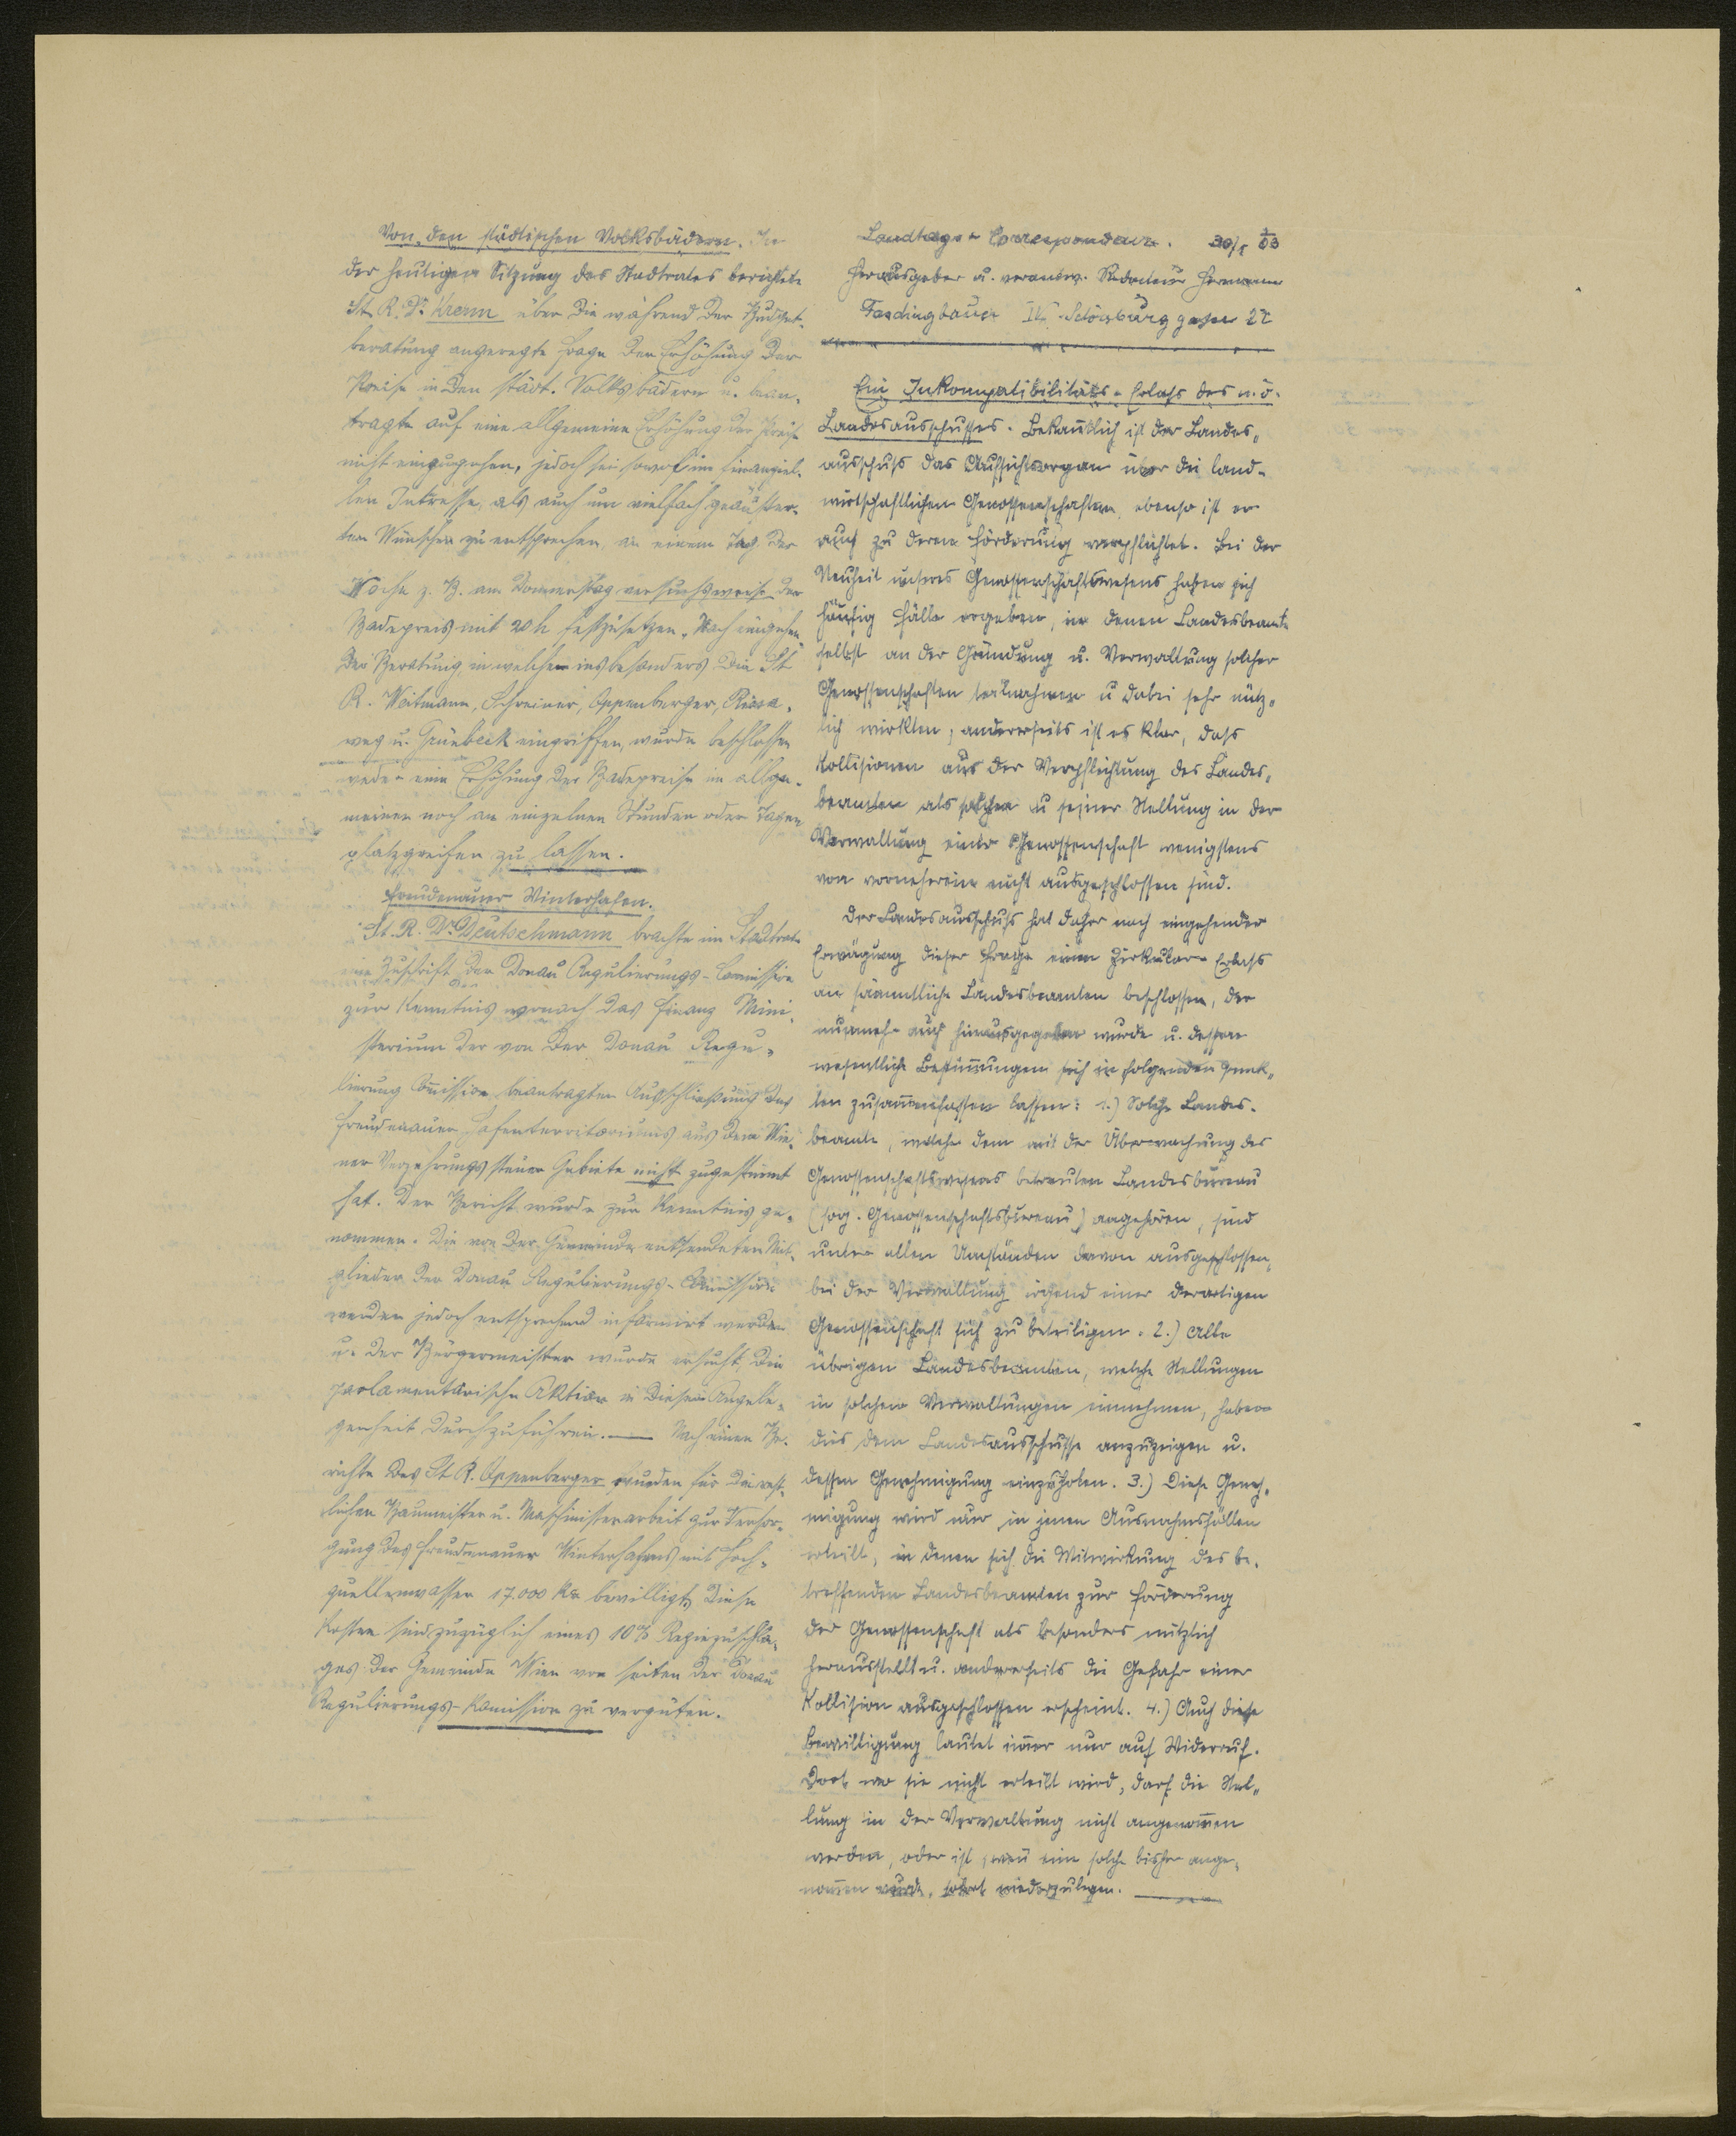 Von den städtischen Volksbädern. In
der heutigen Sitzung des Stadtrates berichtete
St. R. Dr. Krenn über die während der Budget-
beratung angeregte Frage der Erhöhung der
Preise in den städt. Volksbädern u. bean-
tragte auf eine allgemeine Erhöhung der Preise
nicht einzugehen, jedoch sei sowol im finanziel-
len Intresse, als auch um vielfach geäußer-
ten Wünschen zu entsprechen, an einem Tag der
Woche z. B. am Donnerstag versuchsweise der
Badepreis mit 20 h festzusetzen. Nach eingehen-
der Beratung in welcher insbesonders die St
R. Weitmann, Schreiner, Oppenberger,
weg u. Grünbeck eingriffen, wurde beschlossen
weder eine Erhöhung der Badepreise im allge-
meinen noch an einzelnen Stunden oder Tagen
platzgreifen zu lassen.
Freudenauer Winterhafen.
St. R. Dr. Deutschmann brachte im Stadtrate
eine Zuschrift der Donau Regulierungs-Comission
zur Kenntnis wonach das Finanz Mini-
sterium der von der Donau Regu-
lierung Comission beantragten Ausschließung des
Freudenauer Hafenterritoriums aus dem Wie-
ner Verzehrungssteuer Gebiete nicht zugestimmt
hat. Der Bericht wurde zur Kenntnis ge-
nommen. Die von der Gemeinde entsendeten Mit-
glieder der Donau Regulierungs-Comission
werden jedoch entsprechend informirt werden
u. der Bürgermeister wurde ersucht, die
parlamentarische Aktion in dieser Angele-
genheit durchzuführen. — Nach einem Be-
richte des St. R. Oppenberger wurden für die rest-
lichen Baumeister u. Maschinistenarbeit zur Versor-
gung des Freudenauer Winterhafens mit Hoch-
quellenwasser 17.000 Kr bewilligt. Diese
Kosten sind zuzüglich eines 10% Regiezuschla-
ges der Gemeinde Wien von seiten der Donau
Regulierungs-Komission zu vergüten.
Landtags-Correspondenz. 30/5 03
Herausgeber u. verantw. Redacteur Hermann
IV. Schönburggasse 22
Ein Inkompatibilitäts-Erlaß des n.ö.
Landesausschußes. Bekanntlich ist der Landes-
ausschuß das Aufsichtsorgan über die land-
wirtschaftlichen Genossenschaften, ebenso ist er
auch zu deren Förderung verpflichtet. Bei der
Neuheit unseres Genossenschaftswesens haben sich
häufig Fälle ergeben, in denen Landesbeamte
selbst an der Gründung u. Verwaltung solcher
Genossenschaften teilnahmen u dabei sehr nütz-
lich wirkten, andererseits ist es klar, dass
Kollisionen aus der Verpflichtung des Landes-
beamten als solchen u seiner Stellung in der
Verwaltung einer Genossenschaft wenigstens
von vorneherein nicht ausgeschlossen sind.
Der Landesausschuß hat daher nach eingehender
Erwägung dieser Frage einen Zirkular-Erlaß
an sämmtliche Landesbeamten beschlossen, der
nunmehr auch hinausgegeben wurde u. dessen
wesentliche Bestimungen sich in folgenden Punk-
ten zusamenfassen lassen: 1.) Solche Landes-
beamte, welche dem mit der Überwachung des
Genossenschaftswesens betrauten Landesbureau
(sog. Genossenschaftsbureau) angehören, sind
unter allen Umständen davon ausgeschlossen,
bei der Verwaltung irgend einer derartigen
Genossenschaft sich zu beteiligen. 2.) Alle
übrigen Landesbeamten, welche Stellungen
in solchen Verwaltungen einnehmen, haben
dies dem Landesausschusse anzuzeigen u.
dessen Genehmigung einzuholen. 3.) Diese Geneh-
migung wird nur in jenen Ausnahmsfällen
erteilt, in denen sich die Mitwirkung des be-
treffenden Landesbeamten zur Förderung
der Genossenschaft als besonders nützlich
herausstellt u. andererseits die Gefahr einer
Kollision ausgeschlossen erscheint. 4.) Auch diese
Bewilligung lautet imer nur auf Widerruf.
Dort wo sie nicht erteilt wird, darf die Stel-
lung in der Verwaltung nicht angenomen
werden, oder ist, wen eine solche bisher ange-
nomen wurde, sofort niederzulegen.